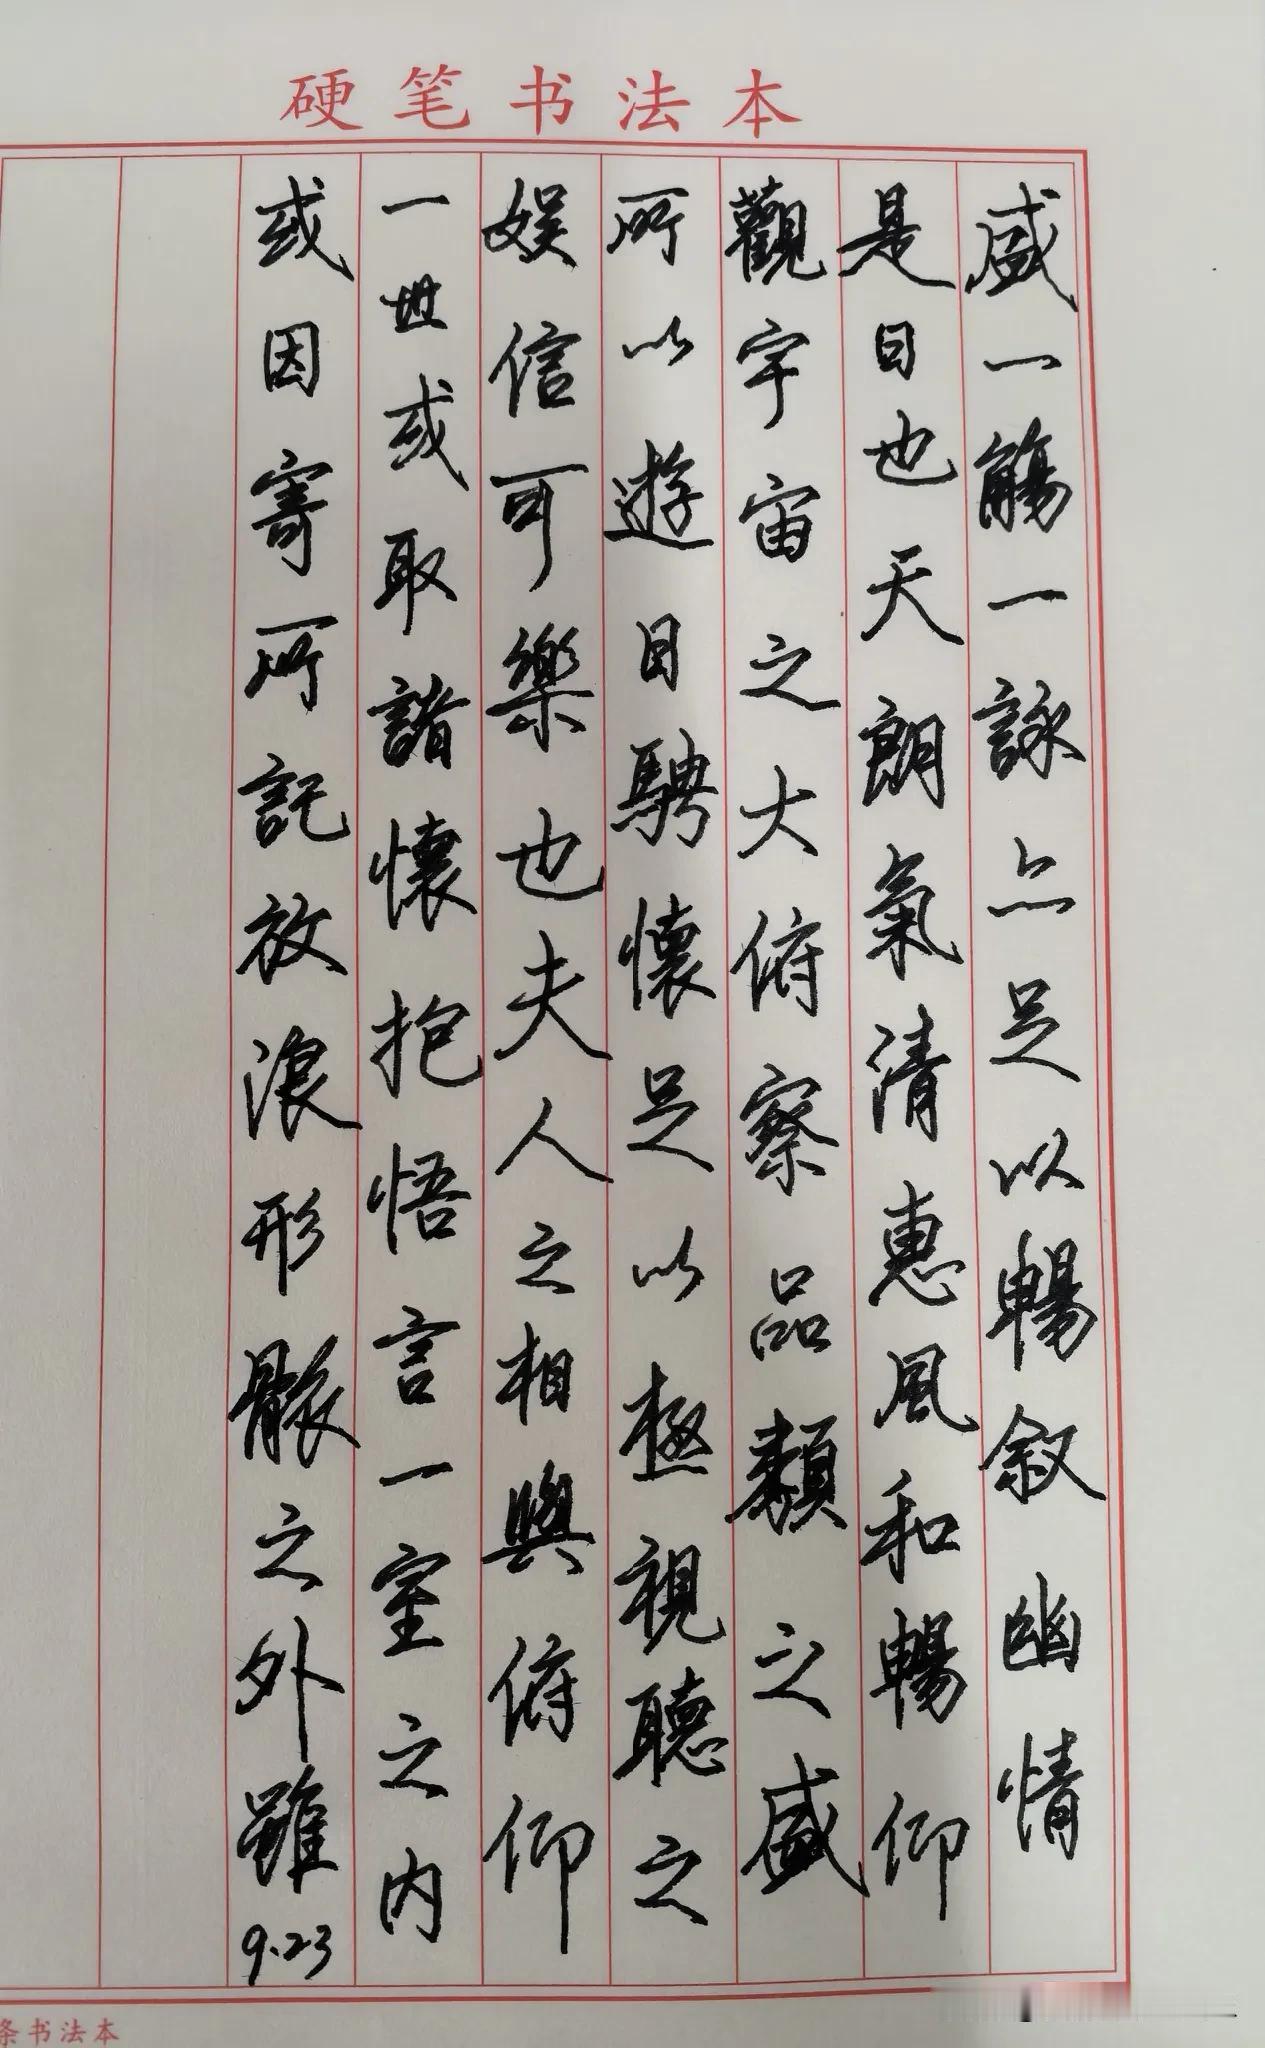 硬笔书法本
盛一觴一詠亦足以暢叙幽情
是日也天朗氣清惠風和暢仰
觀宇宙之大俯察品類之盛
所以遊目騁懷足以極視聽之
娱信可樂也夫人之相與俯仰
一世或取諸懷抱悟言一室之内
或因寄所託放浪形骸之外雖
9.23
条书法本